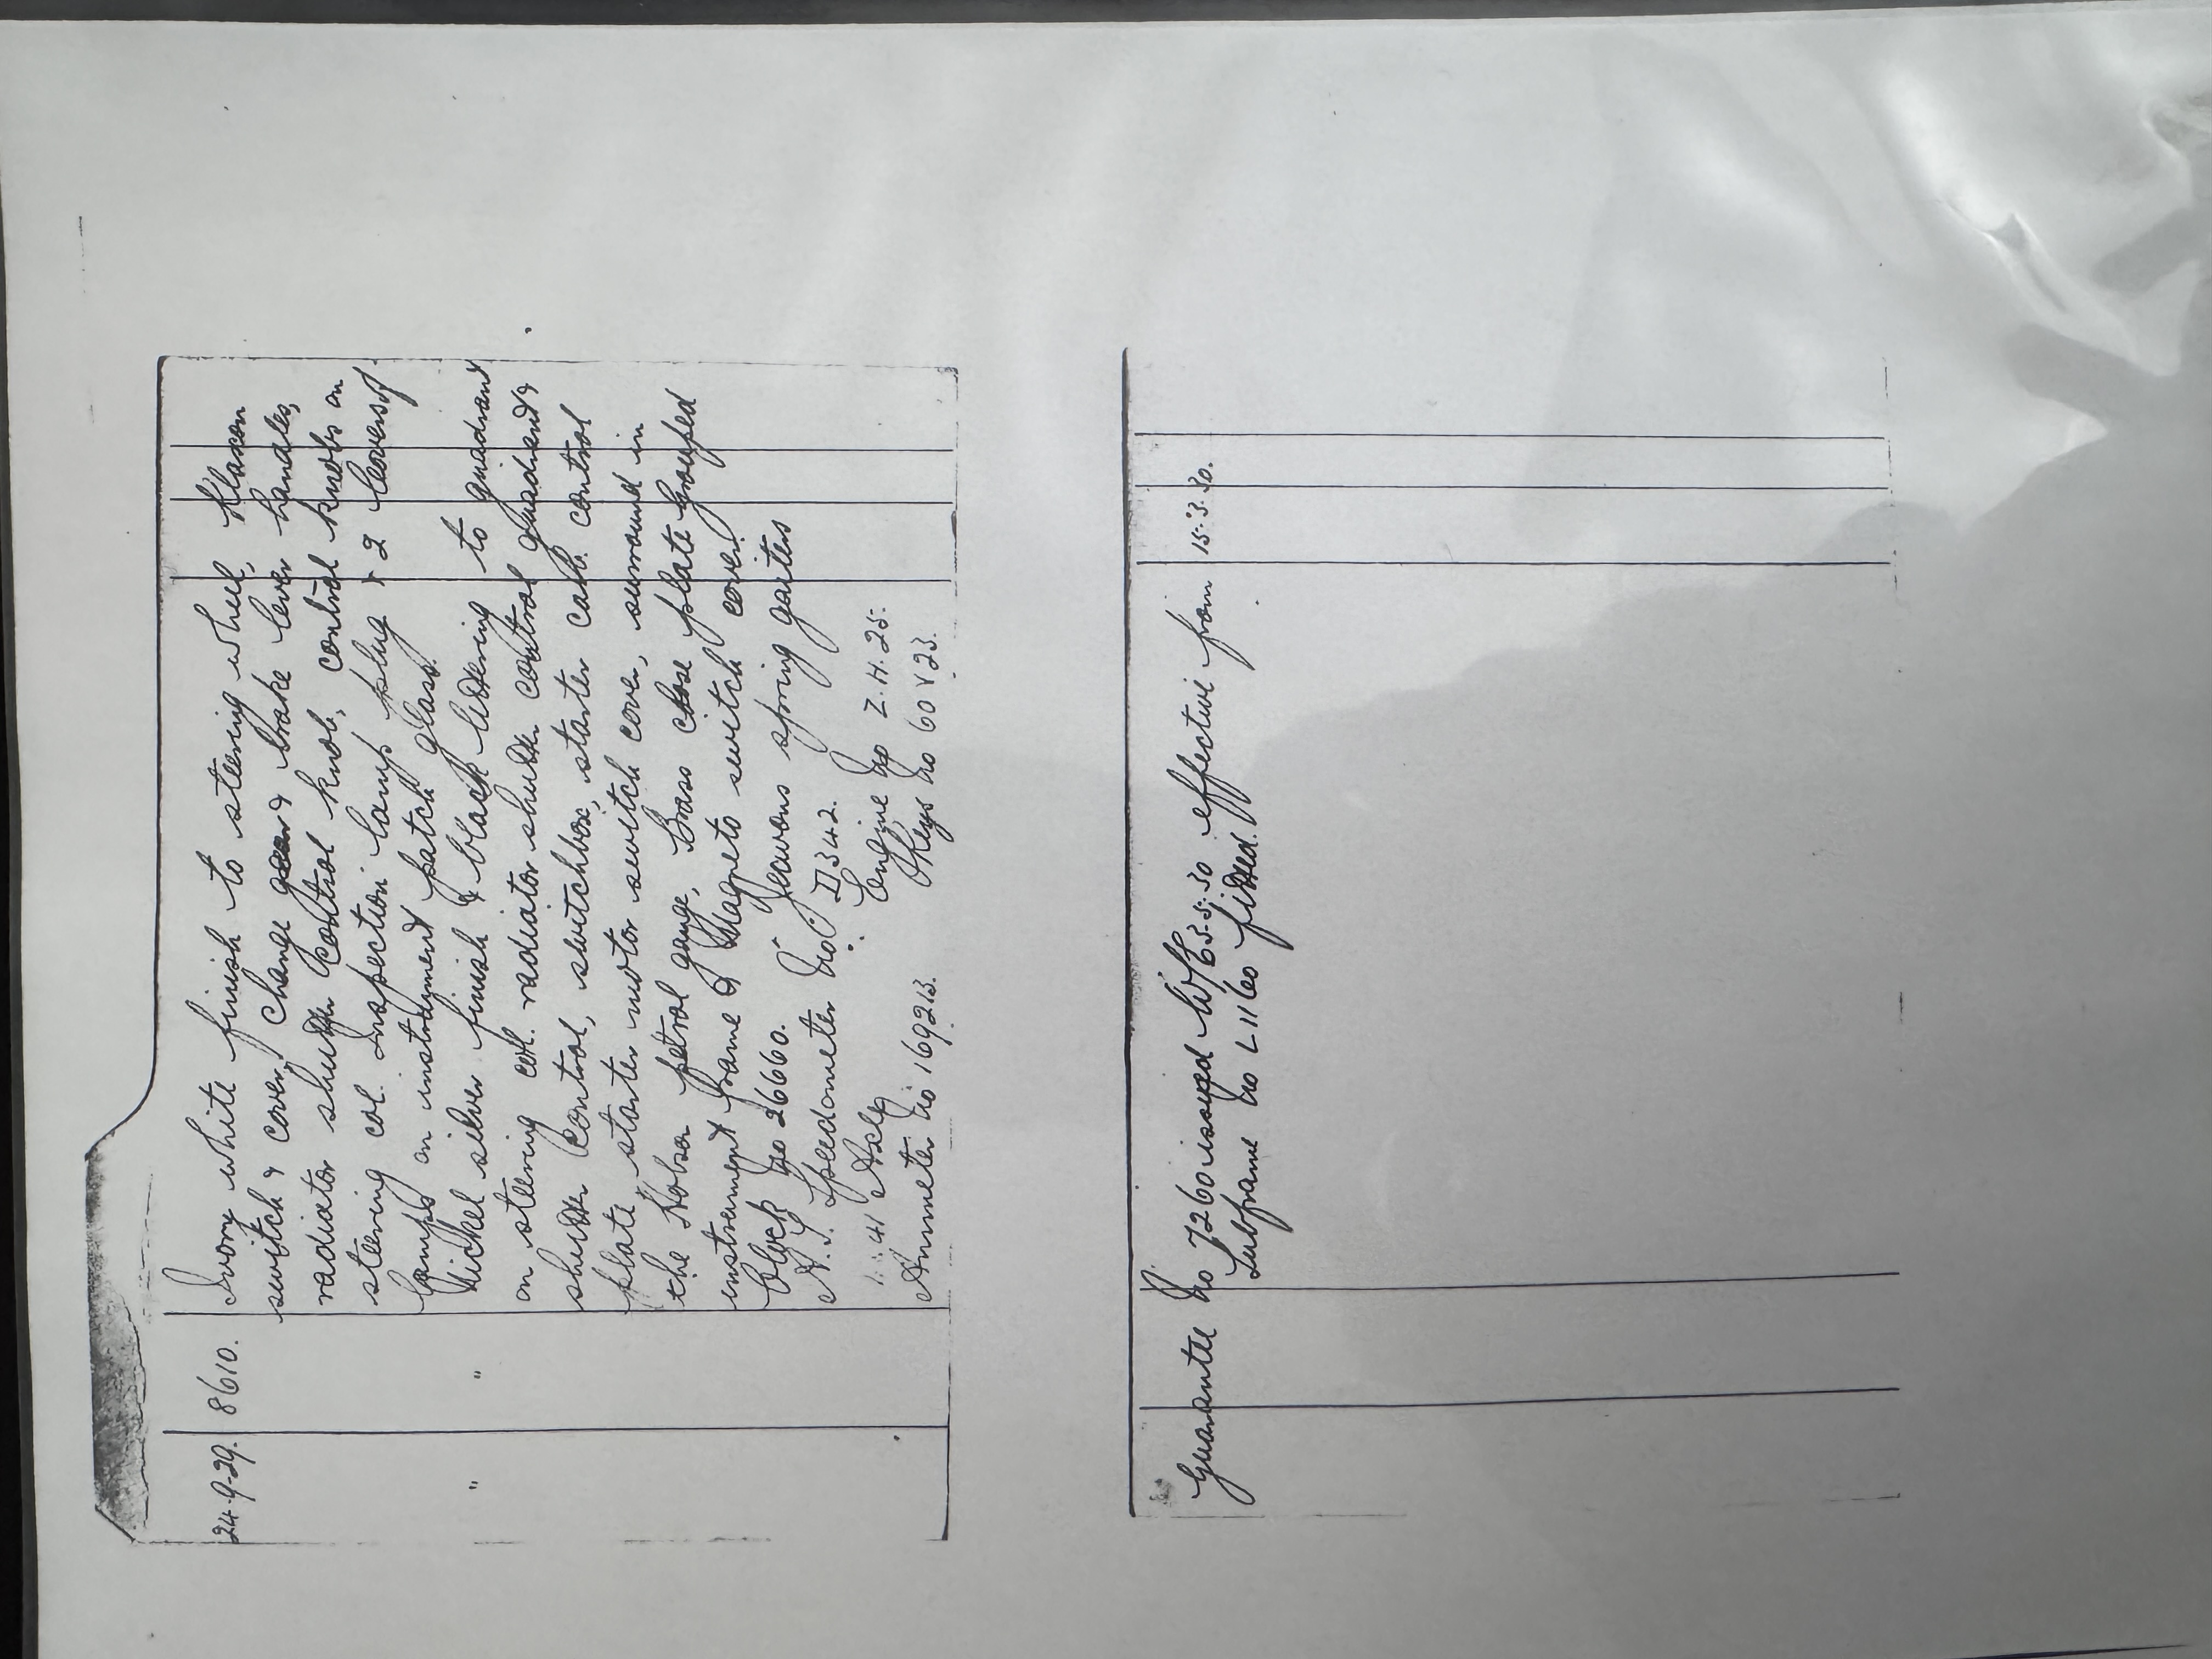 24-9-29. 8610. Ivory white finish to steering wheel, Klaxon
switch & cover, change gear & brake lever handles,
radiator shutter control knob, control knobs on
steering col. Inspection lamp plug & 2 covers of
lamps on instrument patch glass.
" " Nickel silver finish & black lettering to quadrant
on steering col. radiator shutter control quadrant &
shutter control, switchbox, starter carb. control
plate, starter motor switch cover, surround in
the Hobson petrol gauge, Brass close plate grouped
instrument frame & Magneto switch cover.
Clock No 26660. Jeavons spring gaiters
A.T. Speedometer No. D342.
41 Axle Engine No Z.H.25.
Ammeter No 169213. Keys No 60 V 23.
Guarantee No 7260 issued 3.5.30 effective from 15.3.30.
Subframe No L1160 fitted.